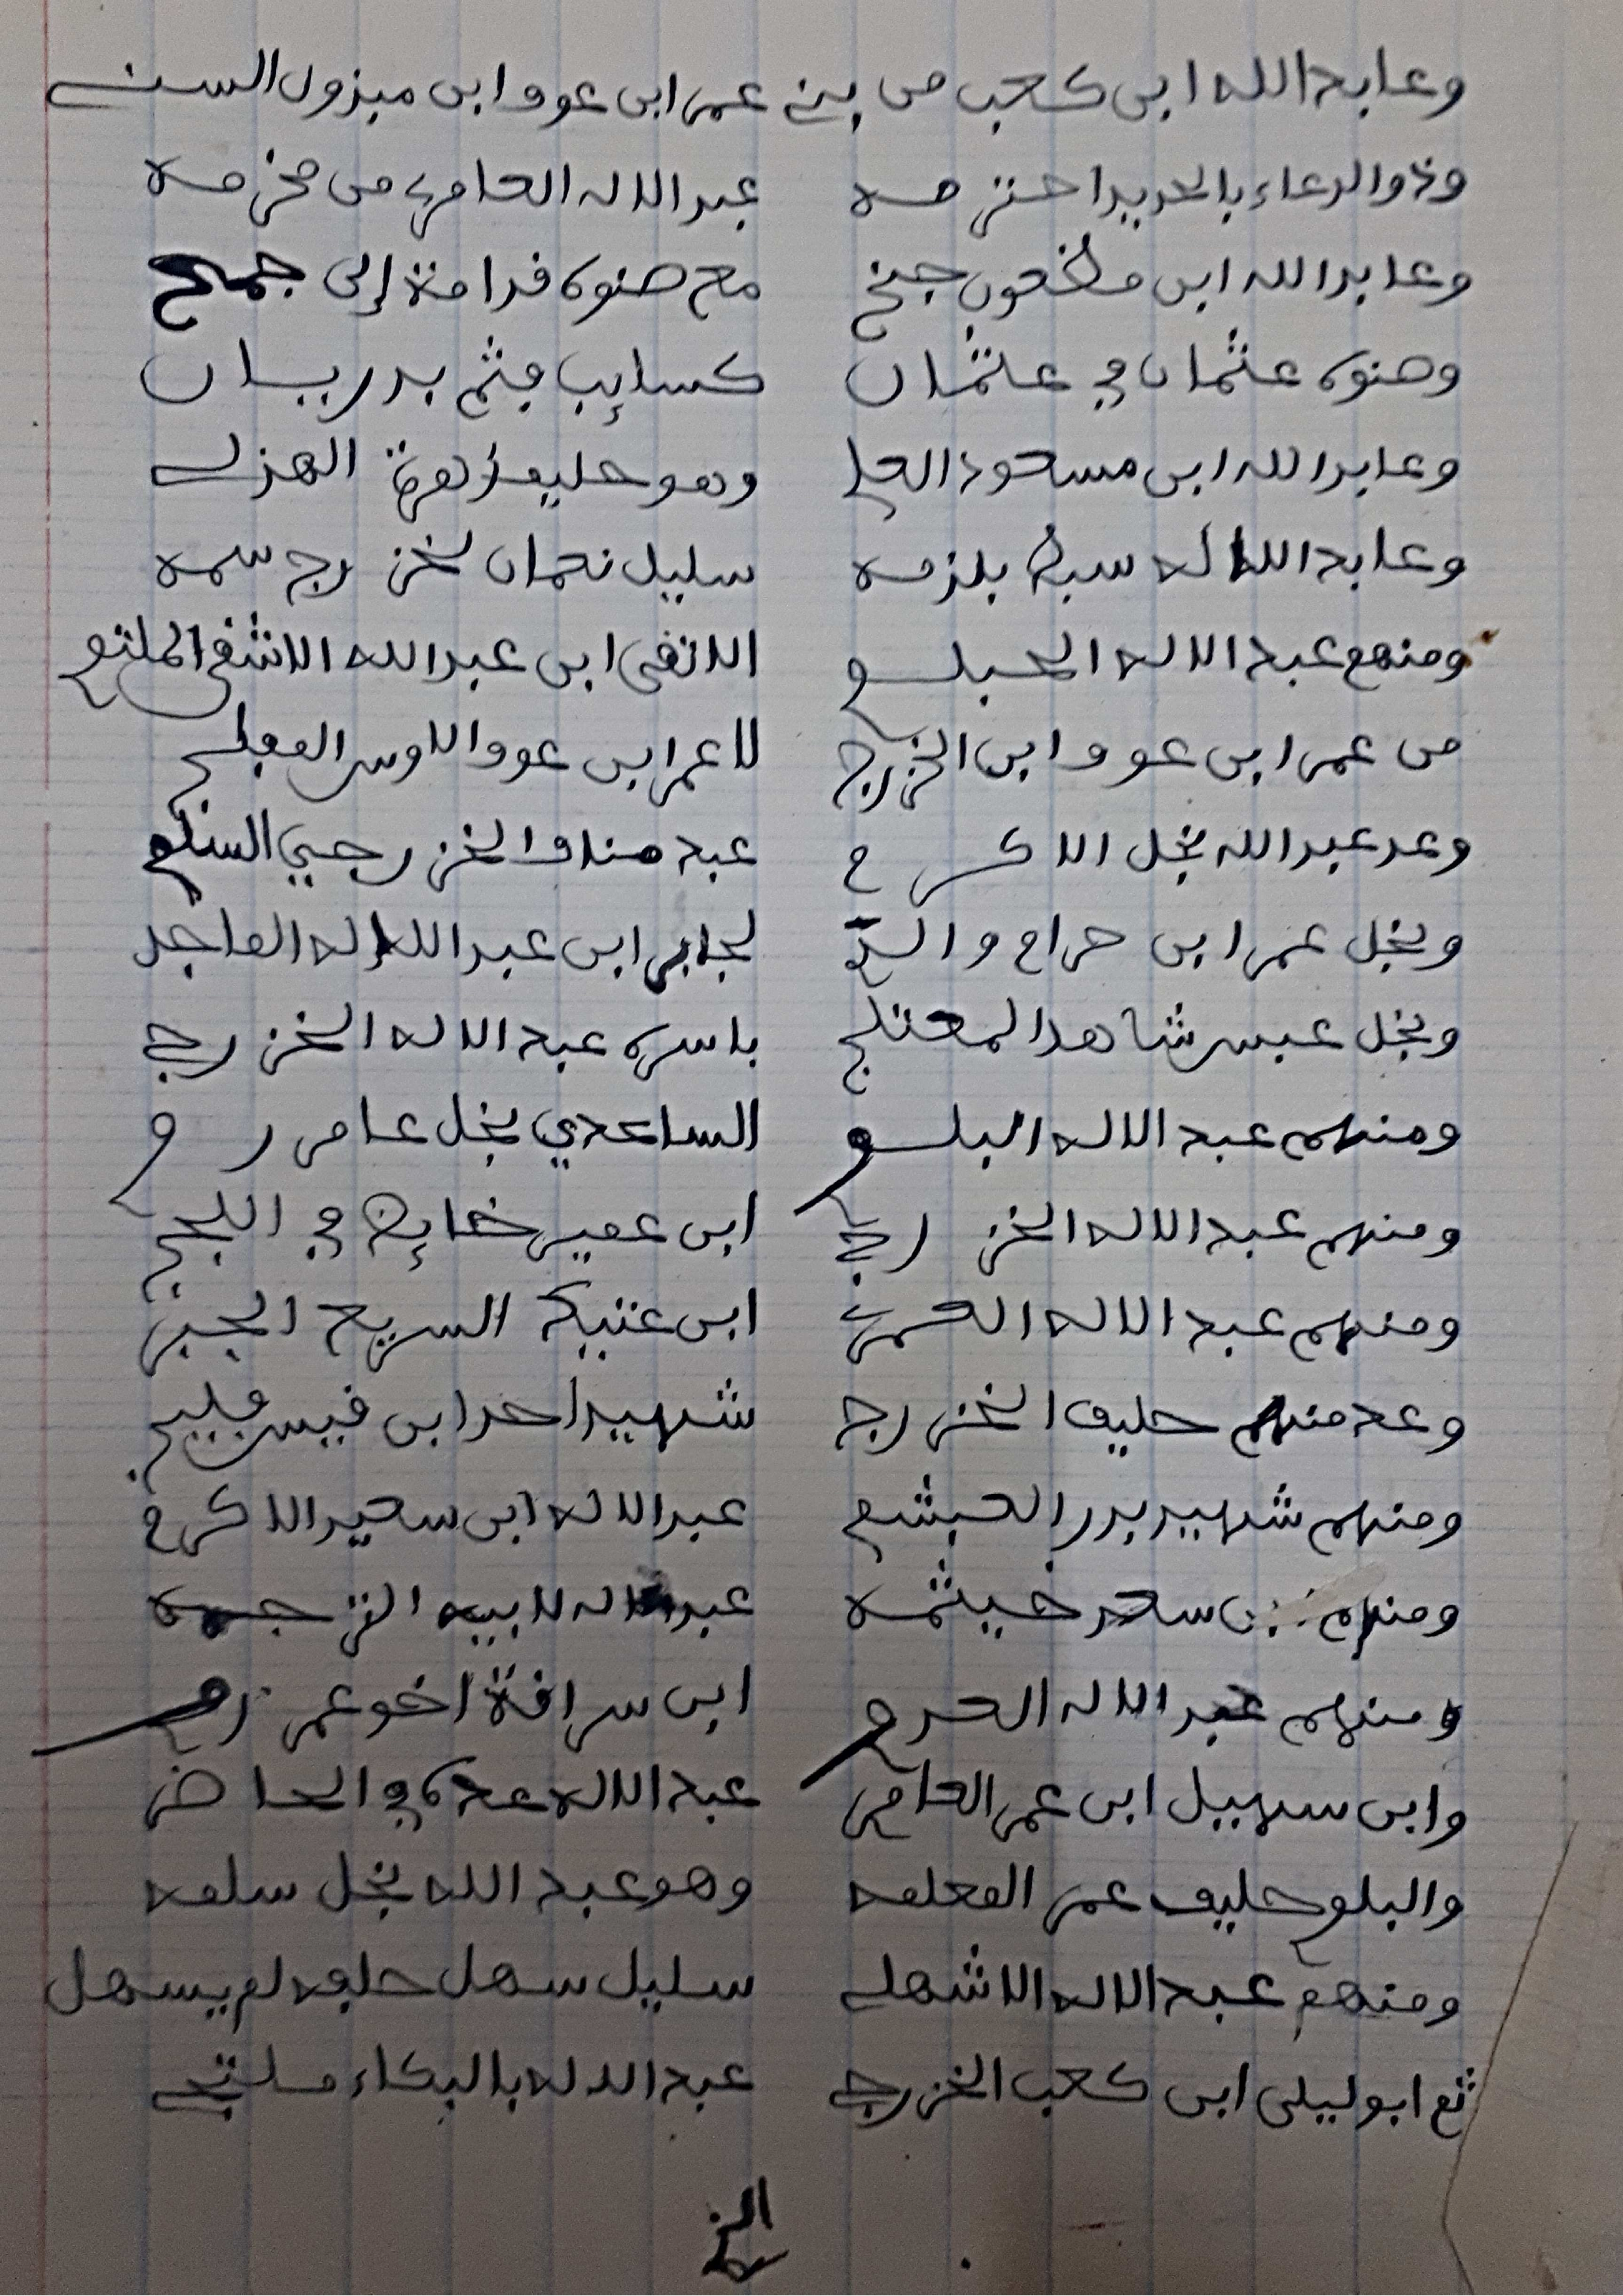 وعابد الله ابن كعب من بني عمر ابن عوف ابن مبزول السني
وذو الدعاء بالحديد احتزمه عبد الاله العامري من مخرمه
وعابد الله ابن مظعون جنح مع صنوه قدامة إلى جمح
وصنوه عثمان في عثمان كسايب فثم بدريان
وعابد الله ابن مسعود العلي وهو حليف زهرة الهذلي
وعابد الاله سبق يلزمه سليل نعمان لخزرج سمه
ومنهم عبد الاله الحبلي الاتقى ابن عبد الله الاشفى الملتفي
من عمر ابن عوف ابن الخزرج لا عمر ابن عوف الاوس الفلج
وعد عبد الله نجل الاكرم عبد مناف الخزرجي السلمي
ونجل عمر ابن حرام والد لجابر ابن عبد الاله الماجد
ونجل عبس شاهد المعتلج باسره عبد الاله الخزرجي
ومنهم عبد الاله البلوي الساعدي نجل عامر روي
ومنهم عبد الاله الخزرجي ابن عمير خايض في اللجج
ومنهم عبد الاله الحمري ابن عنيكة السريع الجبز
وعد منهم حليف الخزرج شهيد احد ابن قيس فليج
ومنهم شهيد بدر العبشمي عبد الاله ابن سعيد الاكرم
ومنهم ابن سعد خيثمه عبد الاله لابيه الترجمه
ومنهم عبد الاله العدوي ابن سراقة اخو عمر روي
وابن سهيل ابن عمر العامري عبد الاله عده في الحاضر
والبلوي حليف عمر المعلمه وهو عبد الله نجل سلمه
ومنهم عبد الاله الاشهلي سليل سهل حلفه لم يسهل
ثم ابو ليلى ابن كعب الخزرجي عبد الاله بالبكاء ملتجي
الخ